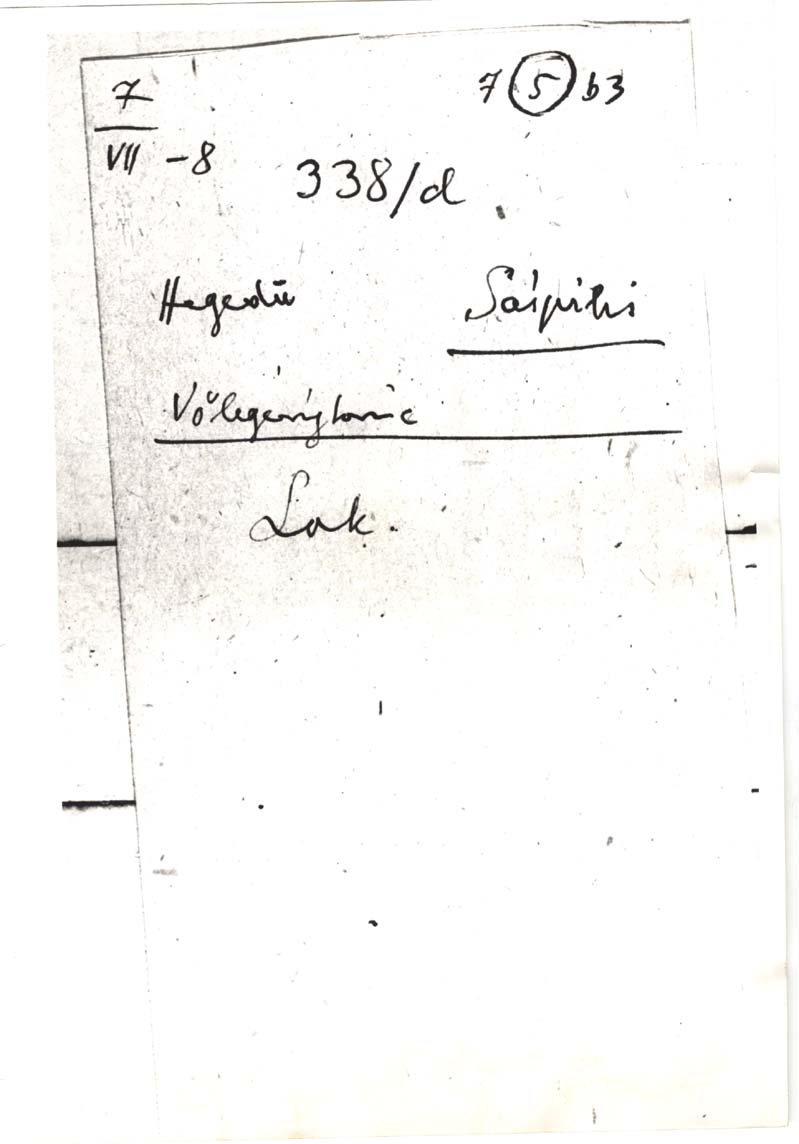 7 7 (5) b3
VII -8 338/d
Hegedű Sáspitki
Vőlegénytánc
Lak.